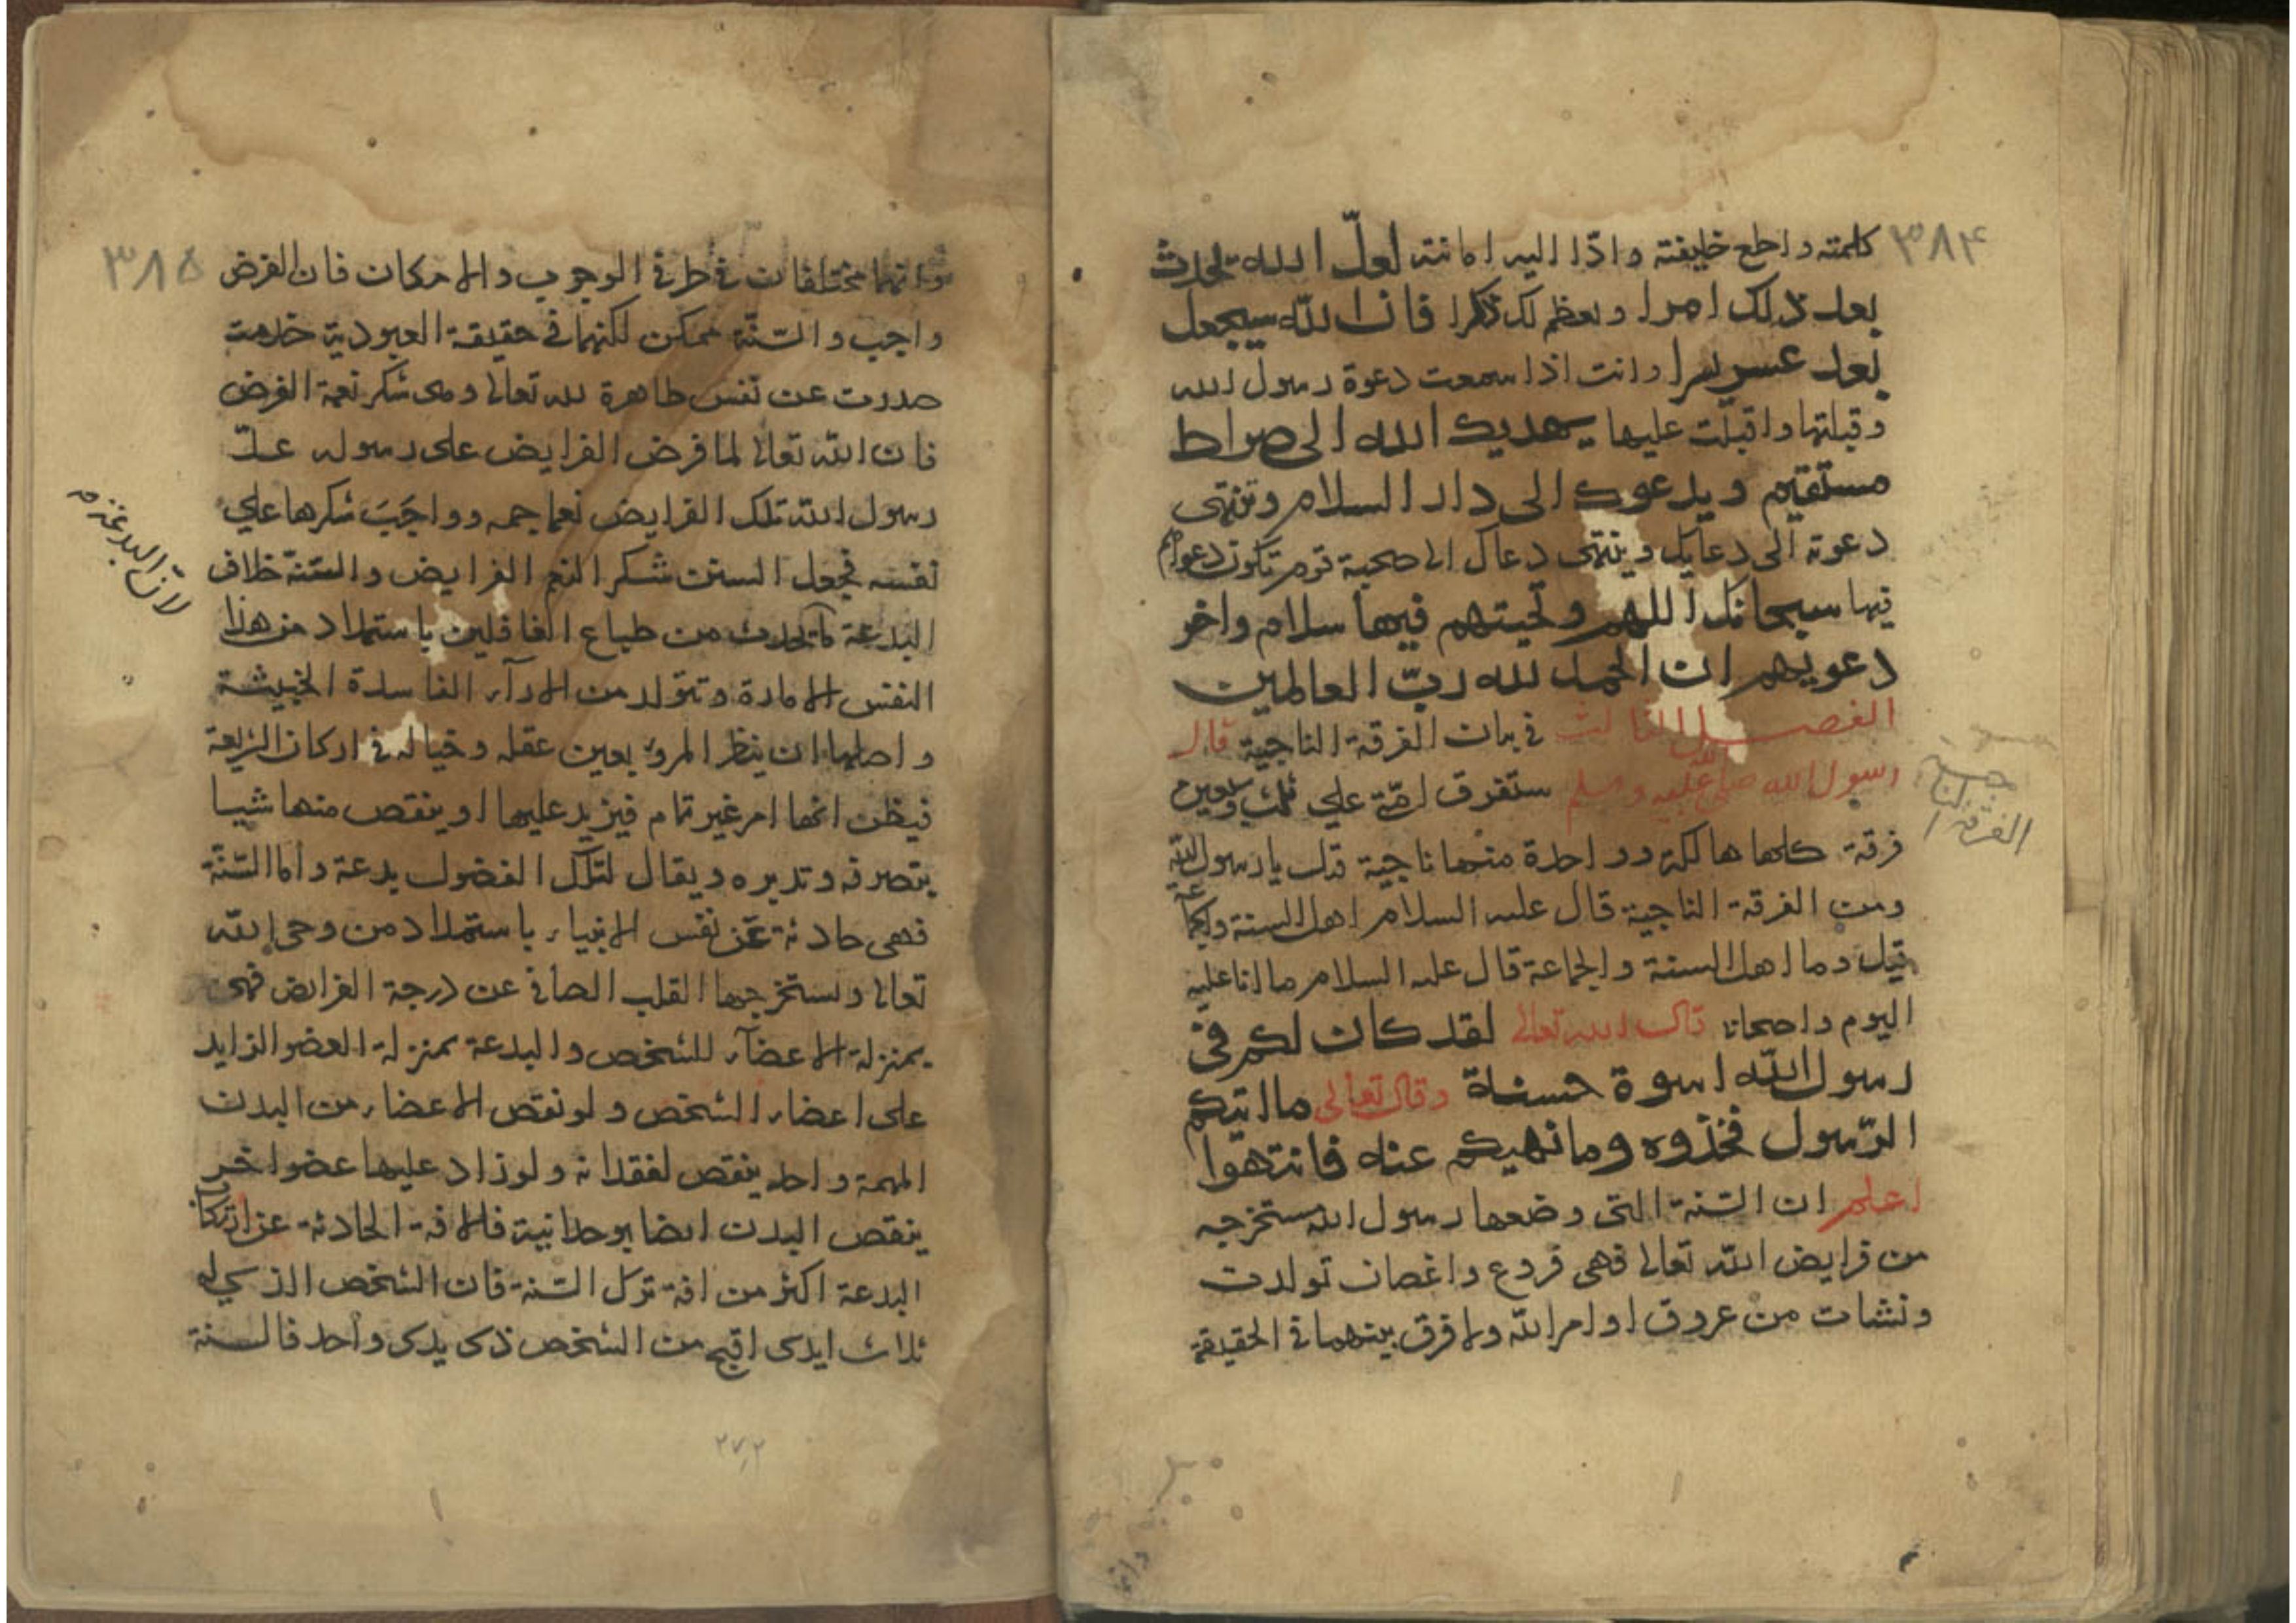 ٣٨۴
كلمته واطع خليفته وادّا اليه امانته لعلّ الله يحدث
بعد ذلك امرا ويعظم لك ذكرا فان الله سيجعل
بعد عسر يسرا وانت اذا سمعت دعوة رسول الله
وقبلتها واقبلت عليها يهديك الله الى صراط
مستقيم ويدعوك الى دار السلام وتنتهى
دعوته الى دعايك وينتهى دعاك الى صحبة قوم تكون دعواهم
فيها سبحانك اللهم وتحيتهم فيها سلام واخر
دعويهم ان الحمد لله ربّ العالمين
الفصل الثالث في بيان الفرقة الناجية قال
رسول الله صلى الله عليه وسلم ستفرق امّتي علي ثلث وسبعين
فرقة كلها هالكة وواحدة منها ناجية قيل يا رسول الله
ومن الفرقة الناجية قال عليه السلام اهل السنة والجماعة
قيل وما اهل السنة والجماعة قال عليه السلام ما انا عليه
اليوم واصحابى قال الله تعالى لقد كان لكم فى
رسول الله اسوة حسنة وقال تعالى ما اتيكم
الرّسول فخذوه وما نهيكم عنه فانتهوا
اعلم ان السّنة التى وضعها رسول الله مستخرجه
من فرايض الله تعالى فهى فروع واغصان تولدت
ونشات من عروق اوامر الله ولا فرق بينهما في الحقيقة
الفرقة الناجية
وانهما
٣٨۵
وانهما مختلفان في طرفي الوجوب والامكان فان الفرض
واجب والسّنّة ممكن لكنهما في حقيقة العبودية خدمت
صدرت عن نفس طاهرة لله تعالى وهى شكر نعمة الفرض
فان الله تعالى لما فرض الفرايض على رسوله عدّ
رسول الله تلك الفرايض نعما جمه وواجَبَ شكرها علي
نفسه فجعل السنن شكر النعم الفرايض والسّنّة خلاف
البدعة لانّ البدعة تحدث من طباع الغافلين باستمداد من هذا
النفس الامارة وتتولد من الارآء الفاسدة الخبيثة
واصلها ان ينظر المرؤ بعين عقله وخياله في اركان الشريعة
فيظن انها امر غير تمام فيزيد عليها او ينقص منها شيا
بتصرفه وتدبيره ويقال لتلك الفضول بدعة واما السّنّة
فهى حادثة عن نفس الانبياء باستمداد من وحى الله
تعالى ويستخرجها القلب الصافي عن درجة الفرائض فهى
بمنزلة الاعضآء للشخص والبدعة بمنزلة العضو الزايد
على اعضاء الشخص ولو نقص الاعضاء من البدن
المهمة واحد ينقص لفقدانه ولو زاد عليها عضو اخر
ينقص البدن ايضا بوحدانية فالافة الحادثة عن ارتكاب
البدعة اكثر من افة ترك السّنة فان الشخص الذي له
ثلاث ايدى اقبح من الشخص ذى يدى واحد فالسنة
٢٧٢